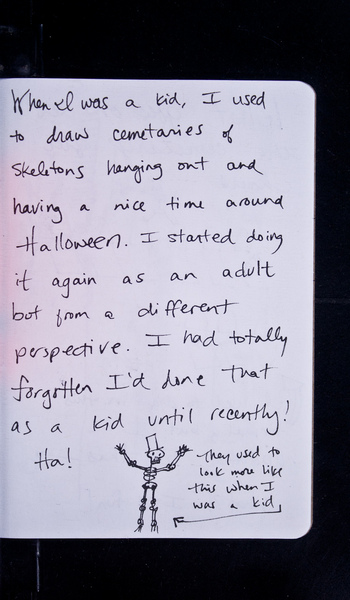 When I was a kid, I used
to draw cemetaries of
skeletons hanging out and
having a nice time around
Halloween. I started doing
it again as an adult
but from a different
perspective. I had totally
forgotten I'd done that
as a kid until recently!
Ha!
They used to
look more like
this when I
was a kid